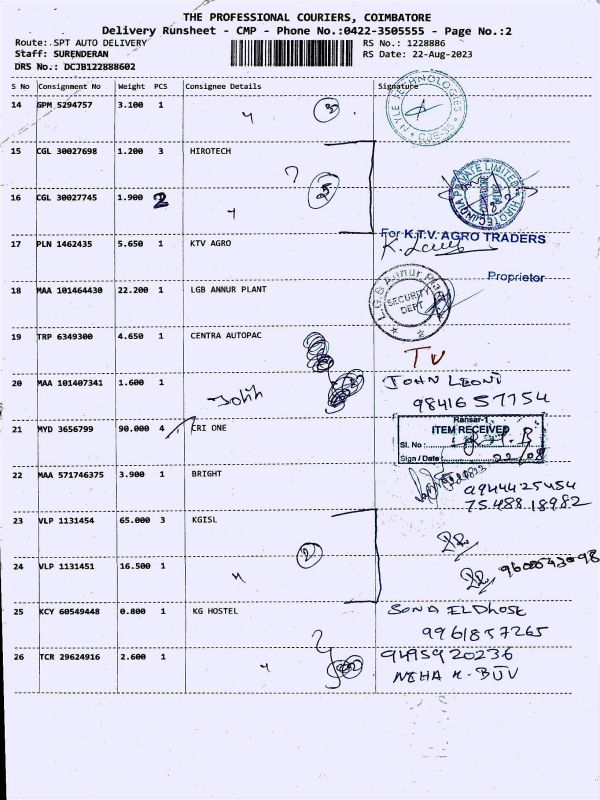 THE PROFESSIONAL COURIERS, COIMBATORE
Delivery Runsheet - CMP - Phone No.:0422-3505555 - Page No.:2
Route: SPT AUTO DELIVERY RS No.: 1228886
Staff: SURENDERAN RS Date: 22-Aug-2023
DRS No.: DCJB122888602
S No Consignment No Weight PCS Consignee Details Signature
14 GPM 5294757 3.100 1 3
15 CGL 30027698 1.200 3 HIROTECH
16 CGL 30027745 1.900 2 5
PRIVATE LIMITED
For K.T.V. AGRO TRADERS
17 PLN 1462435 5.650 1 KTV AGRO
Proprietor
18 MAA 101464430 22.200 1 LGB ANNUR PLANT
L.G.B Annur Plant
SECURITY
DEPT
19 TRP 6349300 4.650 1 CENTRA AUTOPAC
TV
20 MAA 101407341 1.600 1 John
JOHN LEONI
9841657754
21 MYD 3656799 90.000 4 CRI ONE
Ransar-1
ITEM RECEIVED
Sl. No :
Sign / Date : 22/08
22 MAA 571746375 3.900 1 BRIGHT
9944425454
7548818982
23 VLP 1131454 65.000 3 KGISL
24 VLP 1131451 16.500 1 2
25 KCY 60549448 0.800 1 KG HOSTEL
SONA ELDHOSE
9961857265
26 TCR 29624916 2.600 1
9495920236
NEHA K. BIJU